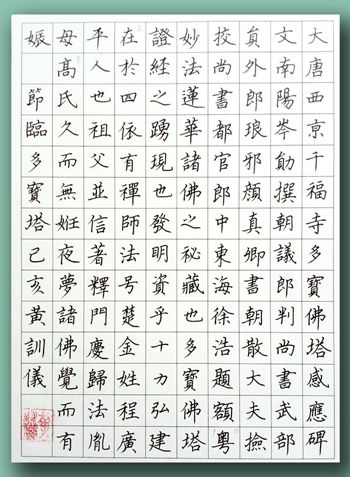 大唐西京千福寺多寶佛塔感應碑
文南陽岑勛撰朝議郎判尚書武部
員外郎琅邪顏真卿書朝散大夫撿
挍尚書都官郎中東海徐浩題額粵
妙法蓮華諸佛之秘藏也多寶佛塔
證經之踴現也發明資乎十力弘建
在於四依有禪師法号楚金姓程廣
平人也祖父並信著釋門慶歸法胤
母髙氏久而無姙夜夢諸佛覺而有
娠
節臨多寶塔己亥黃訓儀